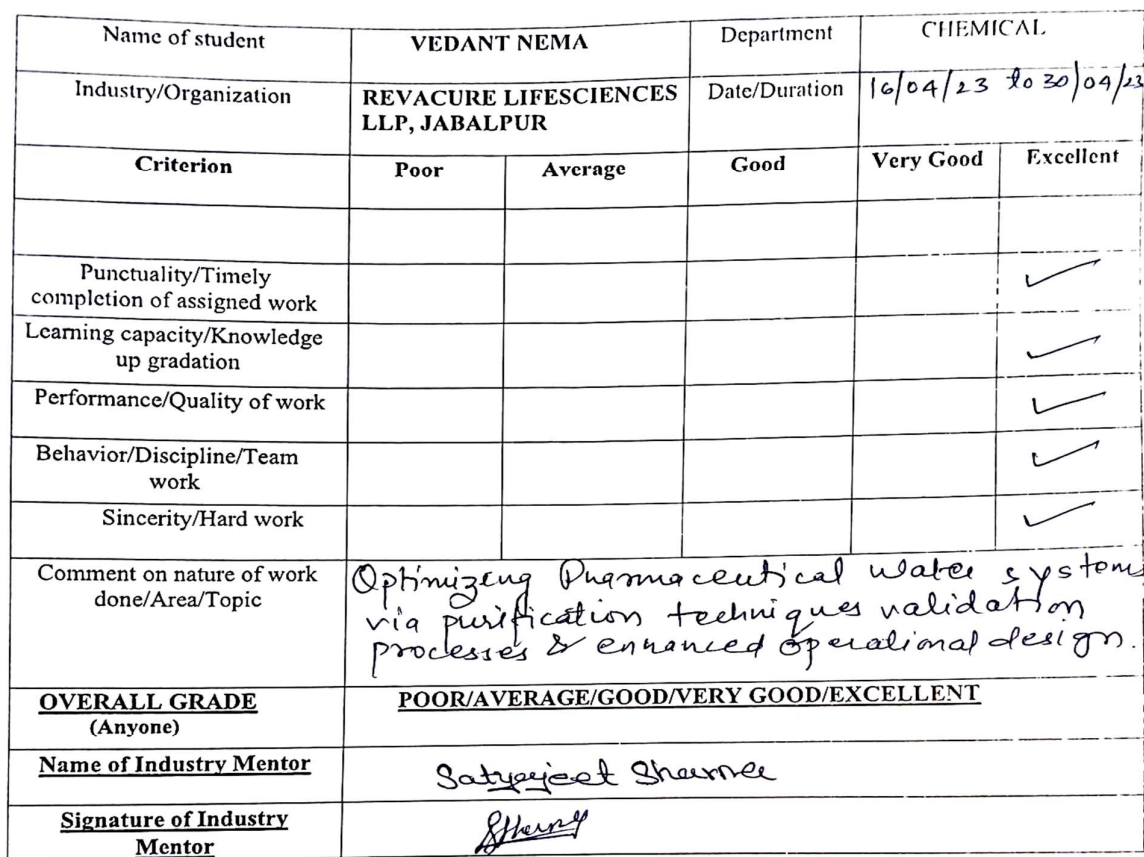 Name of student VEDANT NEMA Department CHEMICAL
Industry/Organization REVACURE LIFESCIENCES Date/Duration 16/04/23 to 30/04/23
LLP, JABALPUR
Criterion Poor Average Good Very Good Excellent
Punctuality/Timely
completion of assigned work
Learning capacity/Knowledge
up gradation
Performance/Quality of work
Behavior/Discipline/Team
work
Sincerity/Hard work
Comment on nature of work
done/Area/Topic
Optimizing Pharmaceutical water systems
via purification techniques validation
processes & enhanced operational design.
OVERALL GRADE POOR/AVERAGE/GOOD/VERY GOOD/EXCELLENT
(Anyone)
Name of Industry Mentor Satyajeet Sharma
Signature of Industry
Mentor